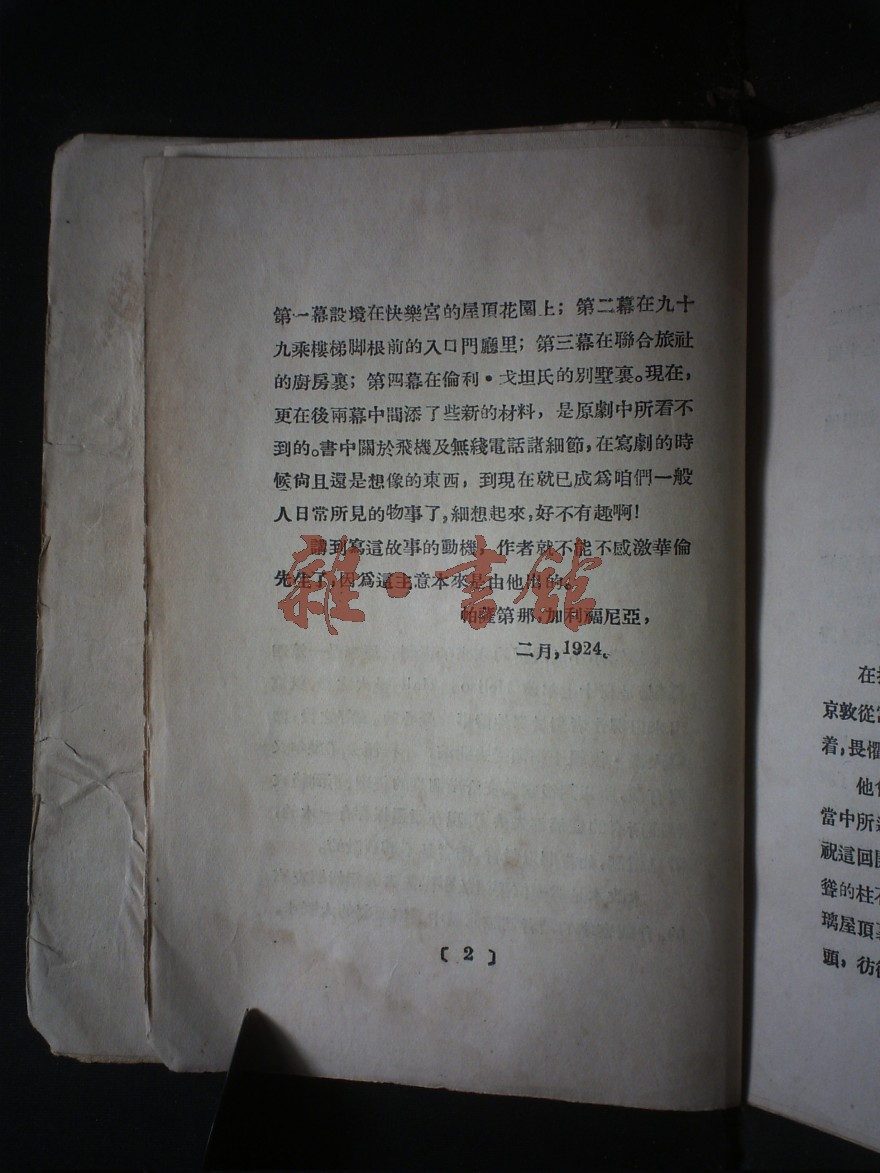 第一幕設境在快樂宮的屋頂花園上；第二幕在九十
九乘樓梯脚根前的入口門廳里；第三幕在聯合旅社
的廚房裏；第四幕在倫利·戈坦氏的別墅裏。現在，
更在後兩幕中間添了些新的材料，是原劇中所看不
到的。書中關於飛機及無綫電話諸細節，在寫劇的時
候尙且還是想像的東西，到現在就已成爲咱們一般
人日常所見的物事了，細想起來，好不有趣啊！
講到寫這故事的動機，作者就不能不感激華倫
先生了，因爲這主意本來是由他出的。
帕薩第那，加利福尼亞，
二月，1924。
〔2〕
雜·書館
在
京敦從
着，畏懼
他
當中所
祝這回
聳的柱
璃屋頂
頭，彷